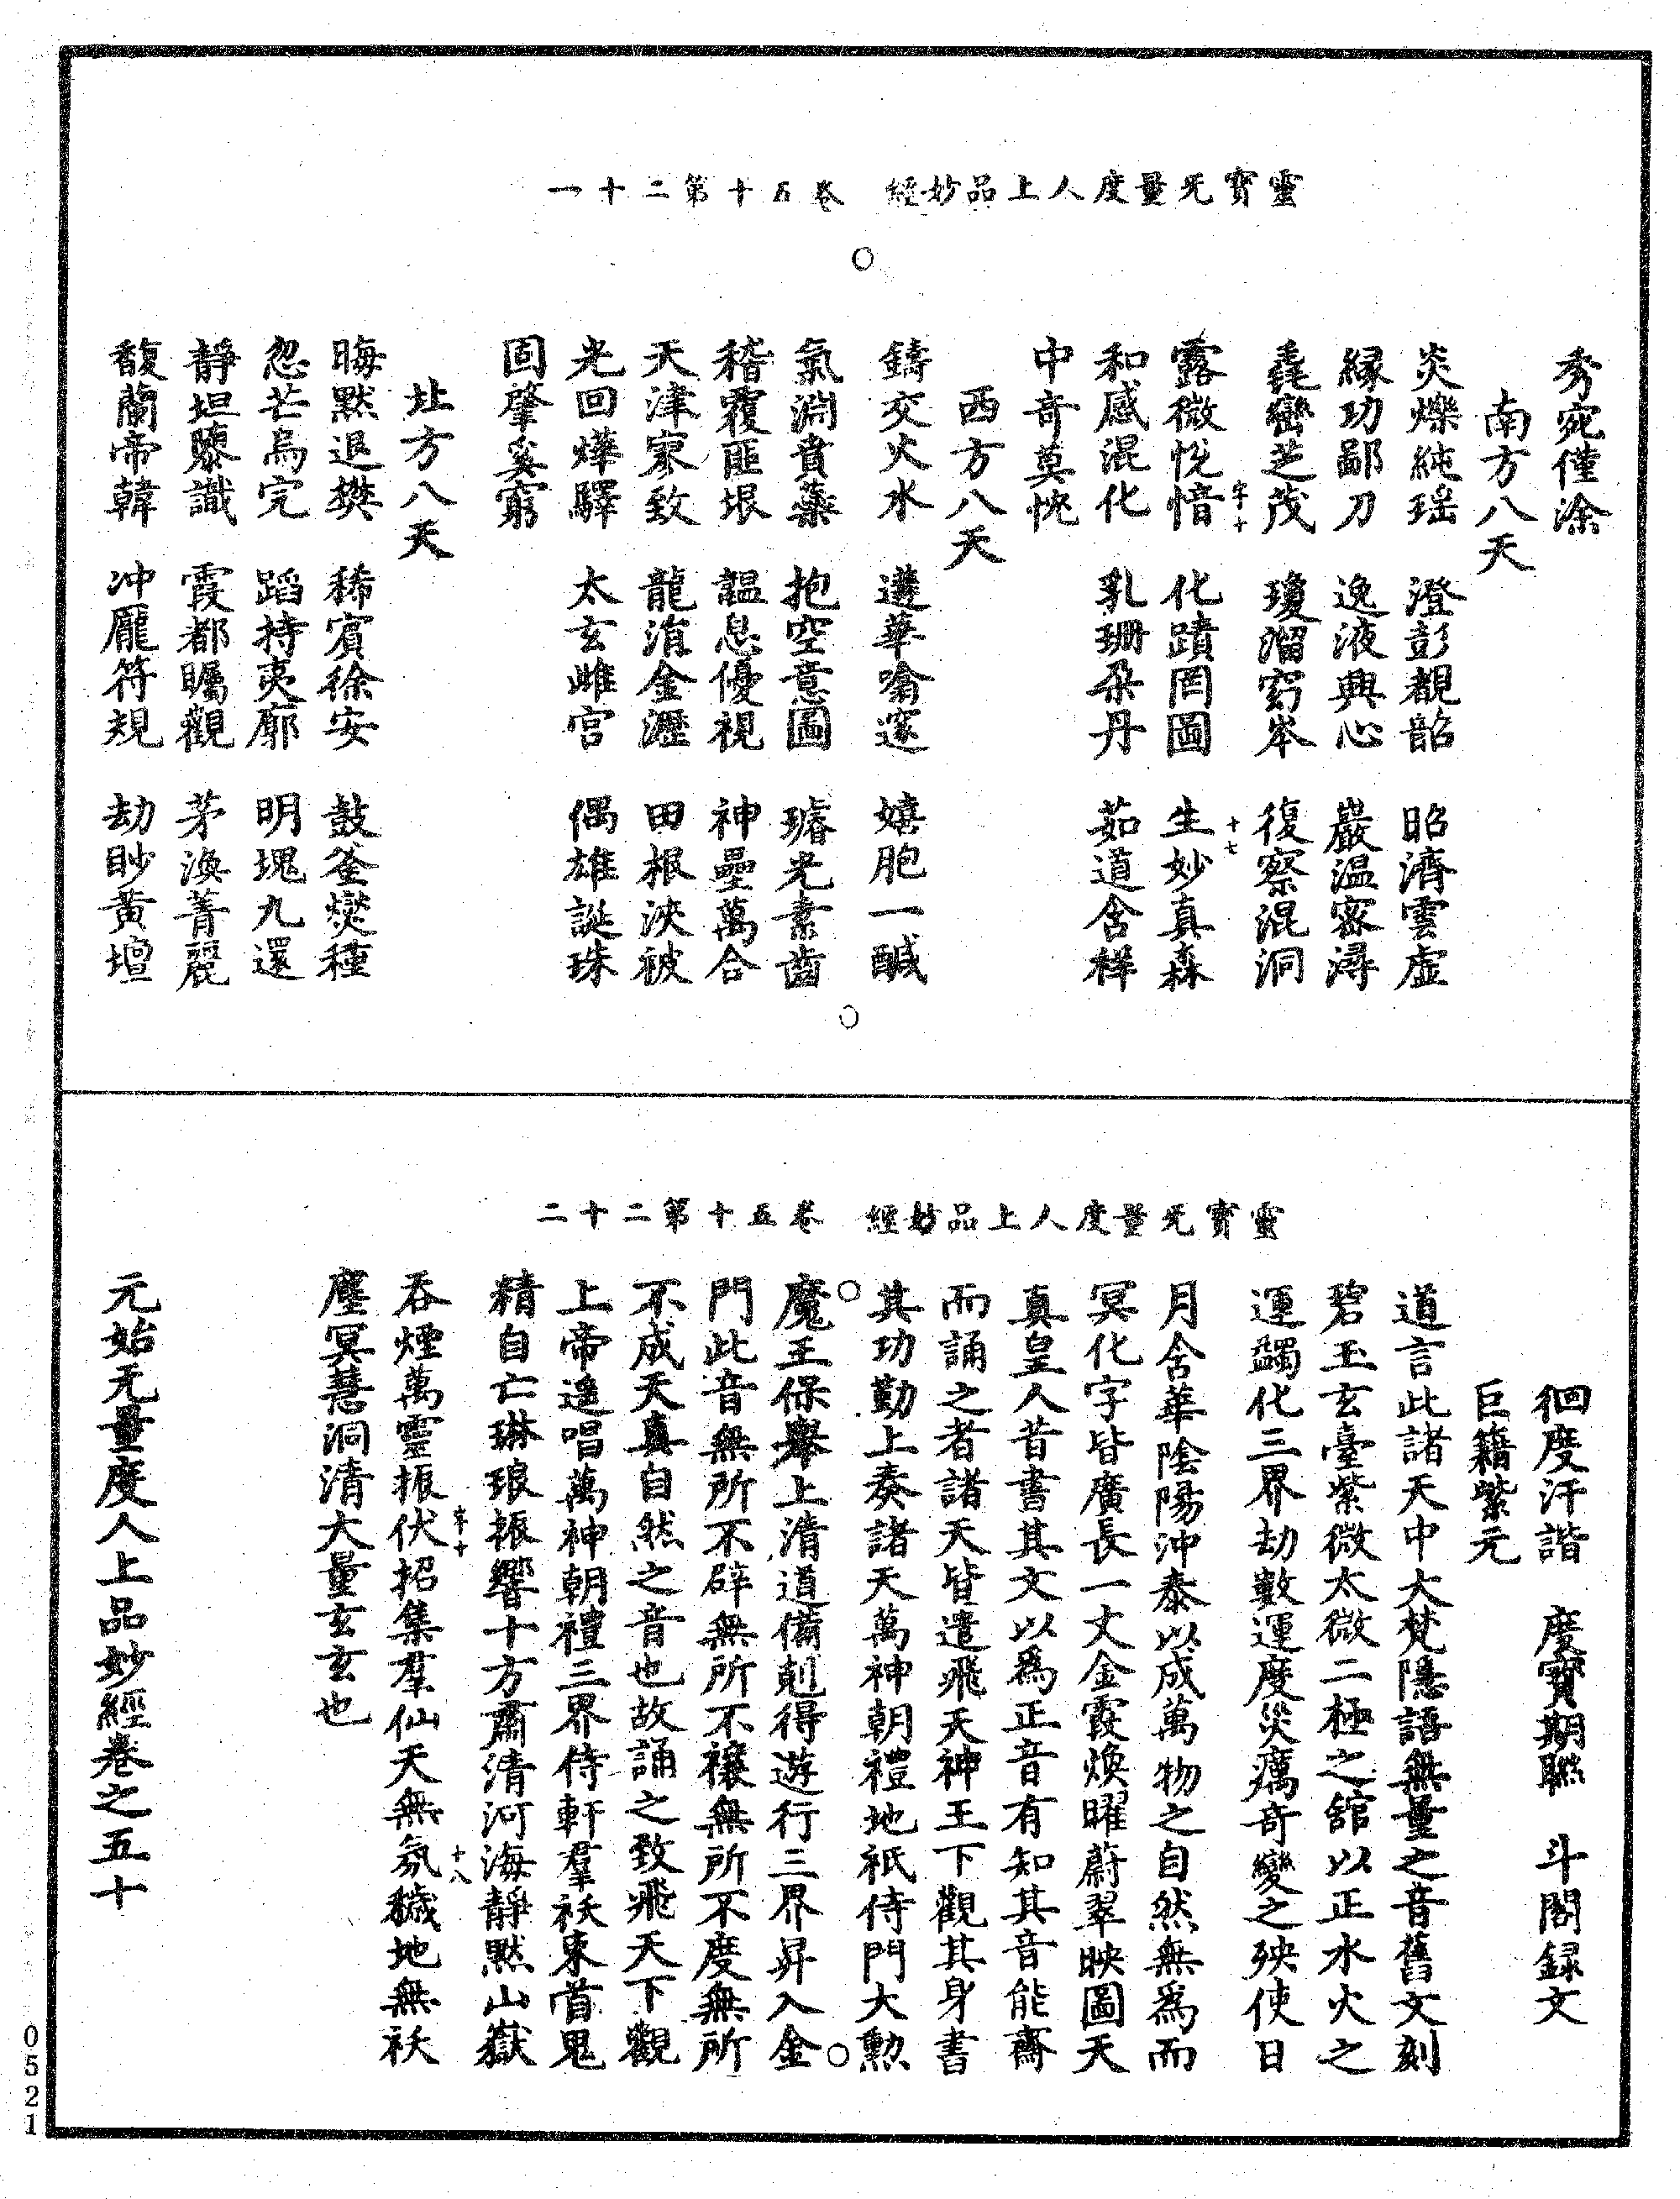 靈寶无量度人上品妙經 卷五十第二十一
秀宛僅涂
南方八天
炎爍純瑶 澄彭覩韶 昭濟雲虛
緣功鄙刀 逸液興心 巖温密潯
毳巒芝茂 瓊溜窈岑 復察混洞
露微悅愔 化蹟罔圖 生妙真森
字十 十七
和感混化 乳珊朶丹 茹道含样
中奇莫恍
西方八天
鑄交火水 遴華噏邃 嬉胞一醎
氣淵賁蘂 抱空意圖 璿光素齒
稽覆匪垠 韞息優視 神壘萬合
天津寥致 龍洧金瀝 田根泱被
光回燁驛 太玄雌宮 偶雄誕珠
固肇奚窮
北方八天
晦默退樊 稀賓徐安 鼓釜㷸種
忽芒烏完 蹈持夷廓 明塊九還
靜坦黎識 霞都矚觀 茅渙菁麗
馥蘭帝韓 冲龐符規 劫眇黃壇
靈寶无量度人上品妙經 卷五十第二十二
徊度汗諧 度寶期聮 斗閣録文
巨籍紫元
道言此諸天中大梵隱語無量之音舊文刻
碧玉玄臺紫微太微二極之舘以正水火之
運蠲化三界劫數運度災癘奇變之殃使日
月含華陰陽沖泰以成萬物之自然無爲而
冥化字皆廣長一丈金霞煥曜蔚翠映圖天
真皇人昔書其文以爲正音有知其音能齋
而誦之者諸天皆遣飛天神王下觀其身書
其功勤上奏諸天萬神朝禮地祇侍門大勲
魔王保舉上清道備剋得遊行三界昇入金
門此音無所不辟無所不禳無所不度無所
不成天真自然之音也故誦之致飛天下觀
上帝遙唱萬神朝禮三界侍軒羣祅束首鬼
精自亡琳琅振響十方肅清河海靜默山嶽
吞煙萬靈振伏招集羣仙天無氛穢地無祅
字十 十八
塵冥慧洞清大量玄玄也
元始无量度人上品妙經卷之五十
0521